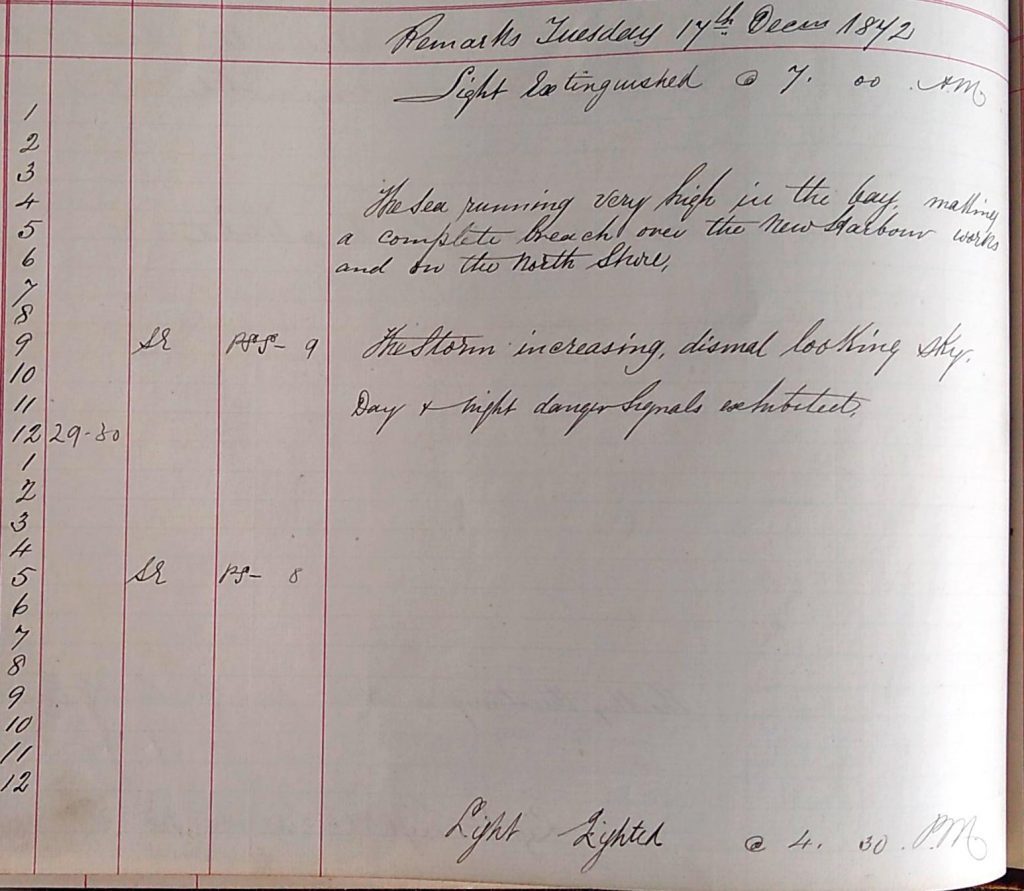 Remarks Tuesday 17th Decm 1872
Light Extinguished @ 7. 00 AM
1
2
3
4 The Sea running very high in the bay, making
5 a complete breach over the New Harbour works
6 and on the North Shore,
7
8
9 SE 9 The Storm increasing, dismal looking sky.
10
11 Day & night danger Signals exhibited,
12 29-30
1
2
3
4
5 SE 8
6
7
8
9
10
11
12
Light Lighted @ 4. 30. P.M.